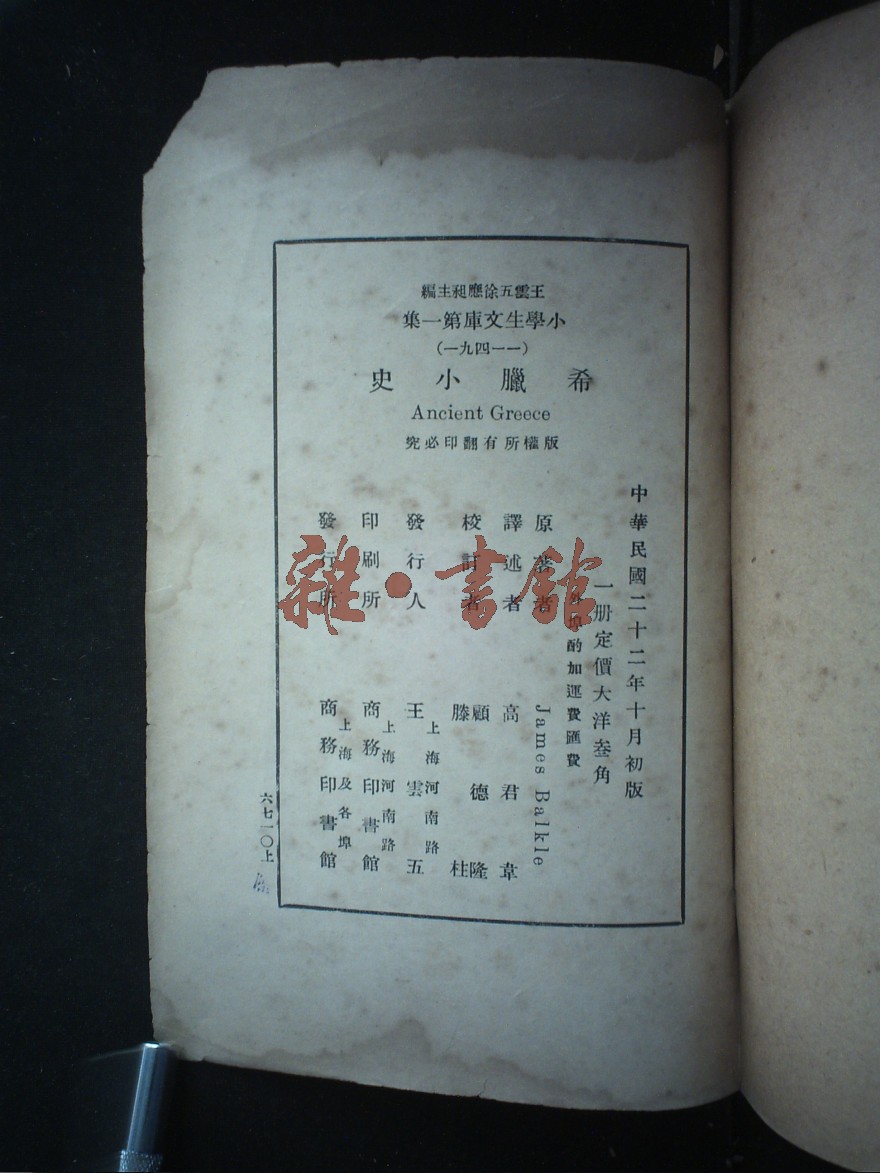 王雲五徐應昶主編
小學生文庫第一集
(一一四九一)
希臘小史
Ancient Greece
版權所有翻印必究
中華民國二十二年十月初版
一册定價大洋叁角
外埠酌加運費匯費
原著者 James Balkle
譯述者 高君韋
校訂者 顧德隆 滕柱
發行人 王雲五
上海河南路
印刷所 商務印書館
上海河南路
發行所 商務印書館
上海及各埠
六七一〇上
雜·書館